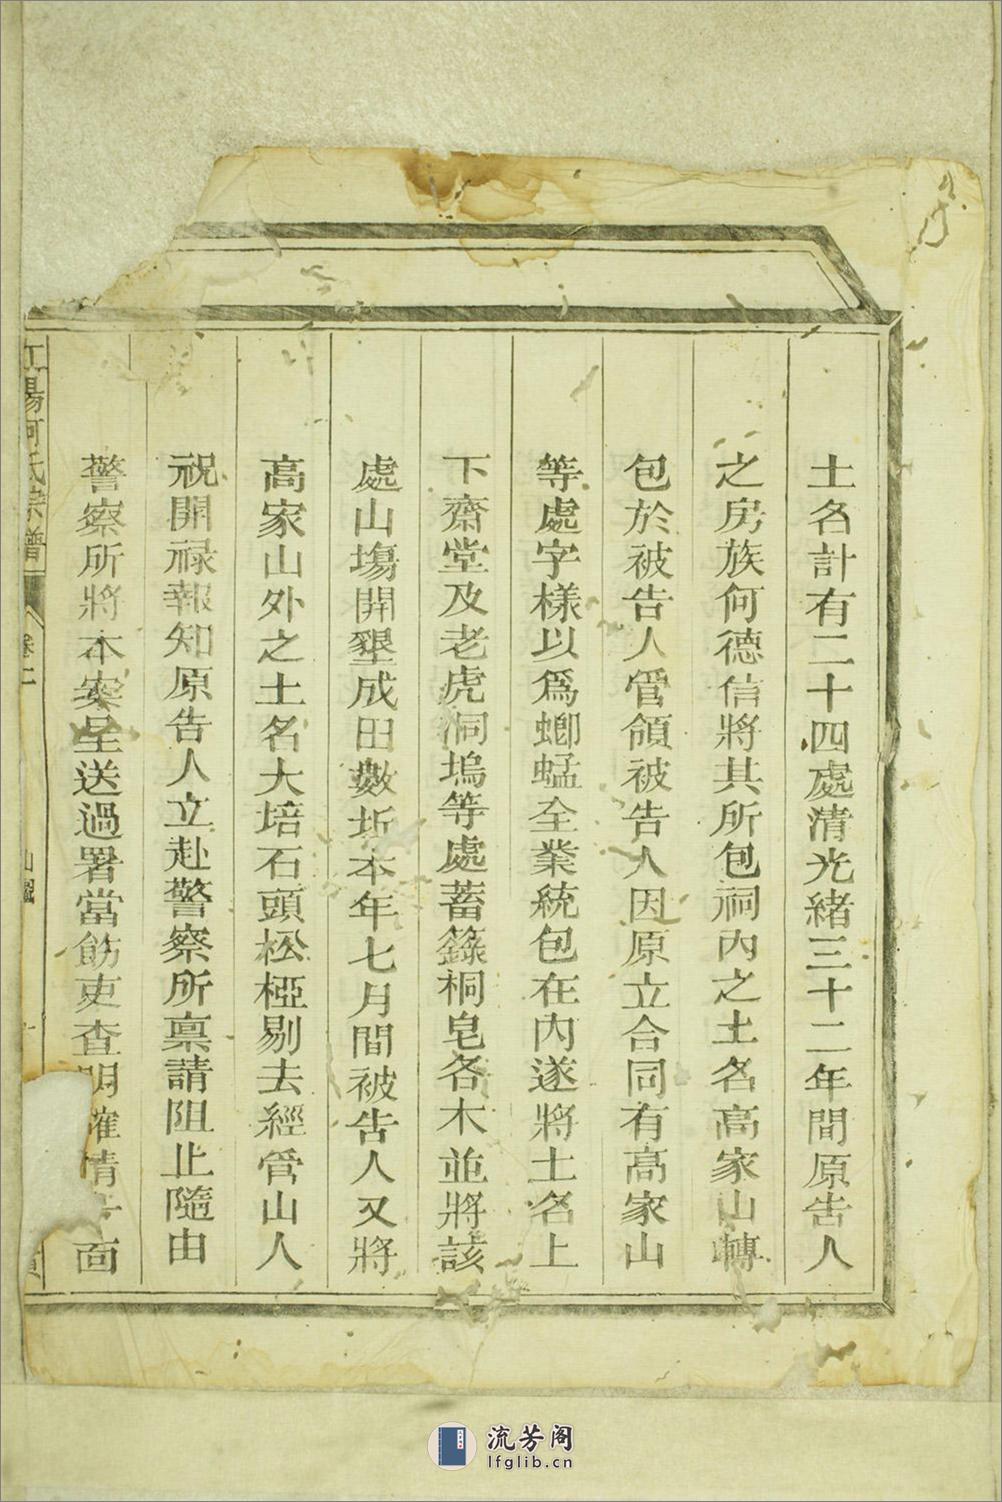 土名計有二十四處清光緒三十二年間原告人
之房族何德信將其所包祠內之土名高家山轉
包於被告人管領被告人因原立合同有高家山
等處字樣以爲蝍蜢全業統包在內遂將土名上
下齋堂及老虎洞塢等處蓄籙桐皂各木並將該
處山塲開墾成田數坵本年七月間被告人又將
高家山外之土名大培石頭松椏剔去經管山人
祝開祿報知原告人立赴警察所稟請阻止隨由
警察所將本案呈送過署當飭吏查明確情 面
江陽何氏宗譜
卷二
流芳阁
lfglib.cn